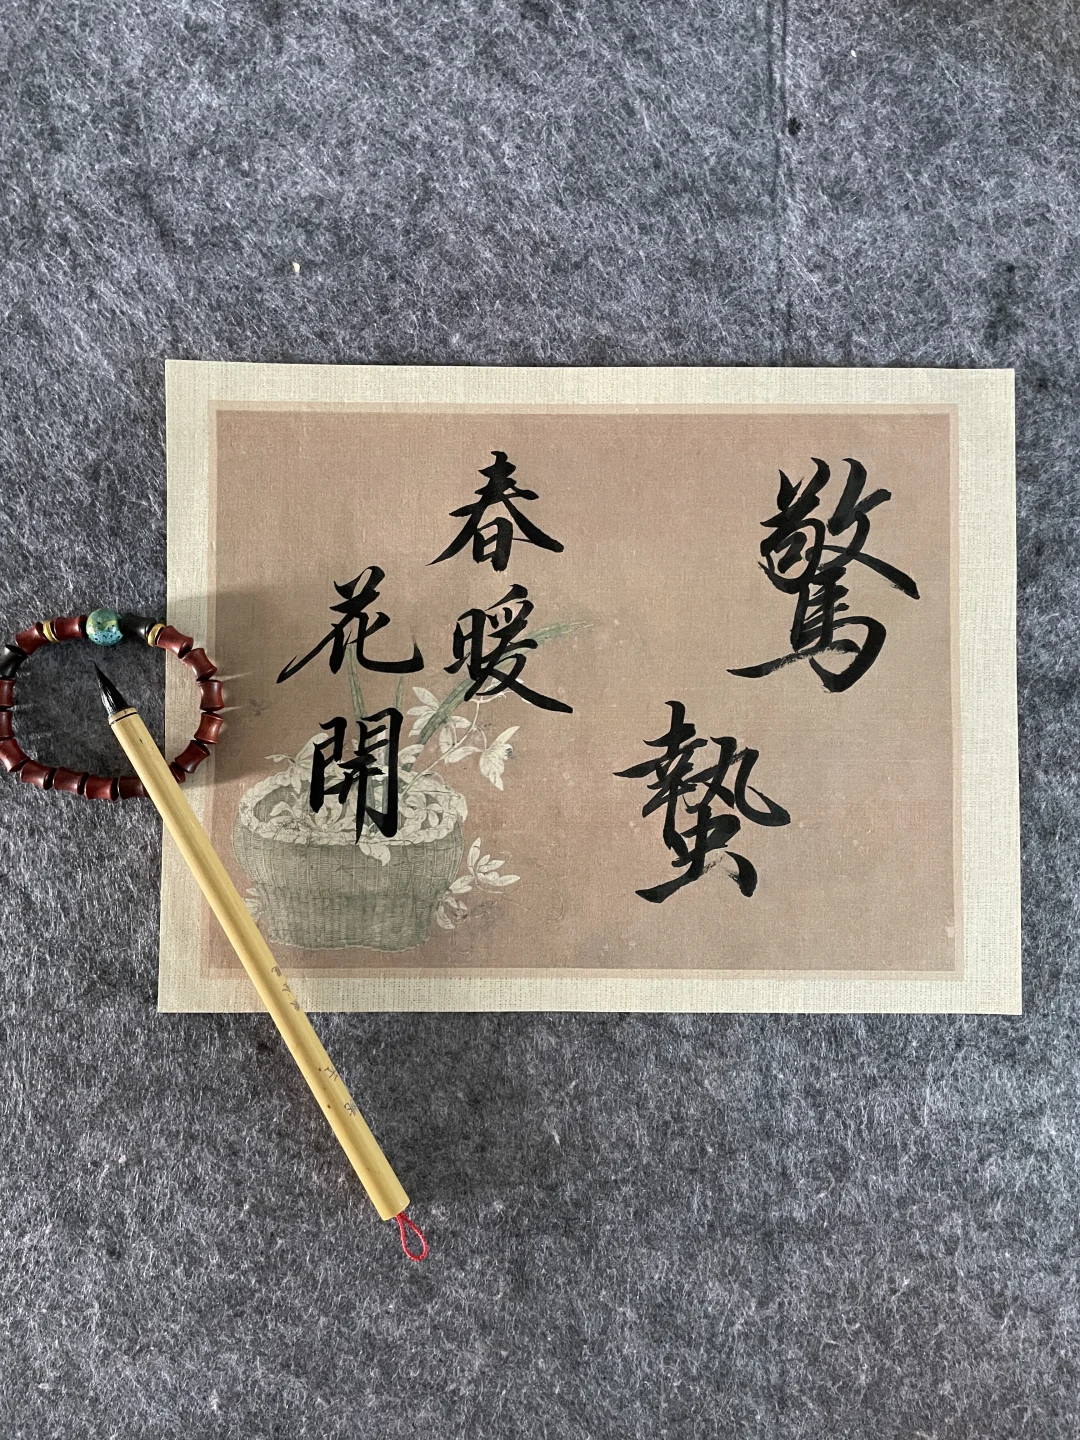 驚蟄
春暖
花開